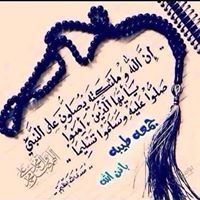 إن الله وملائكته يصلون على النبي
يا أيها الذين آمنوا
صلوا عليه وسلموا تسليما
جمعه طيبه
بإذن الله